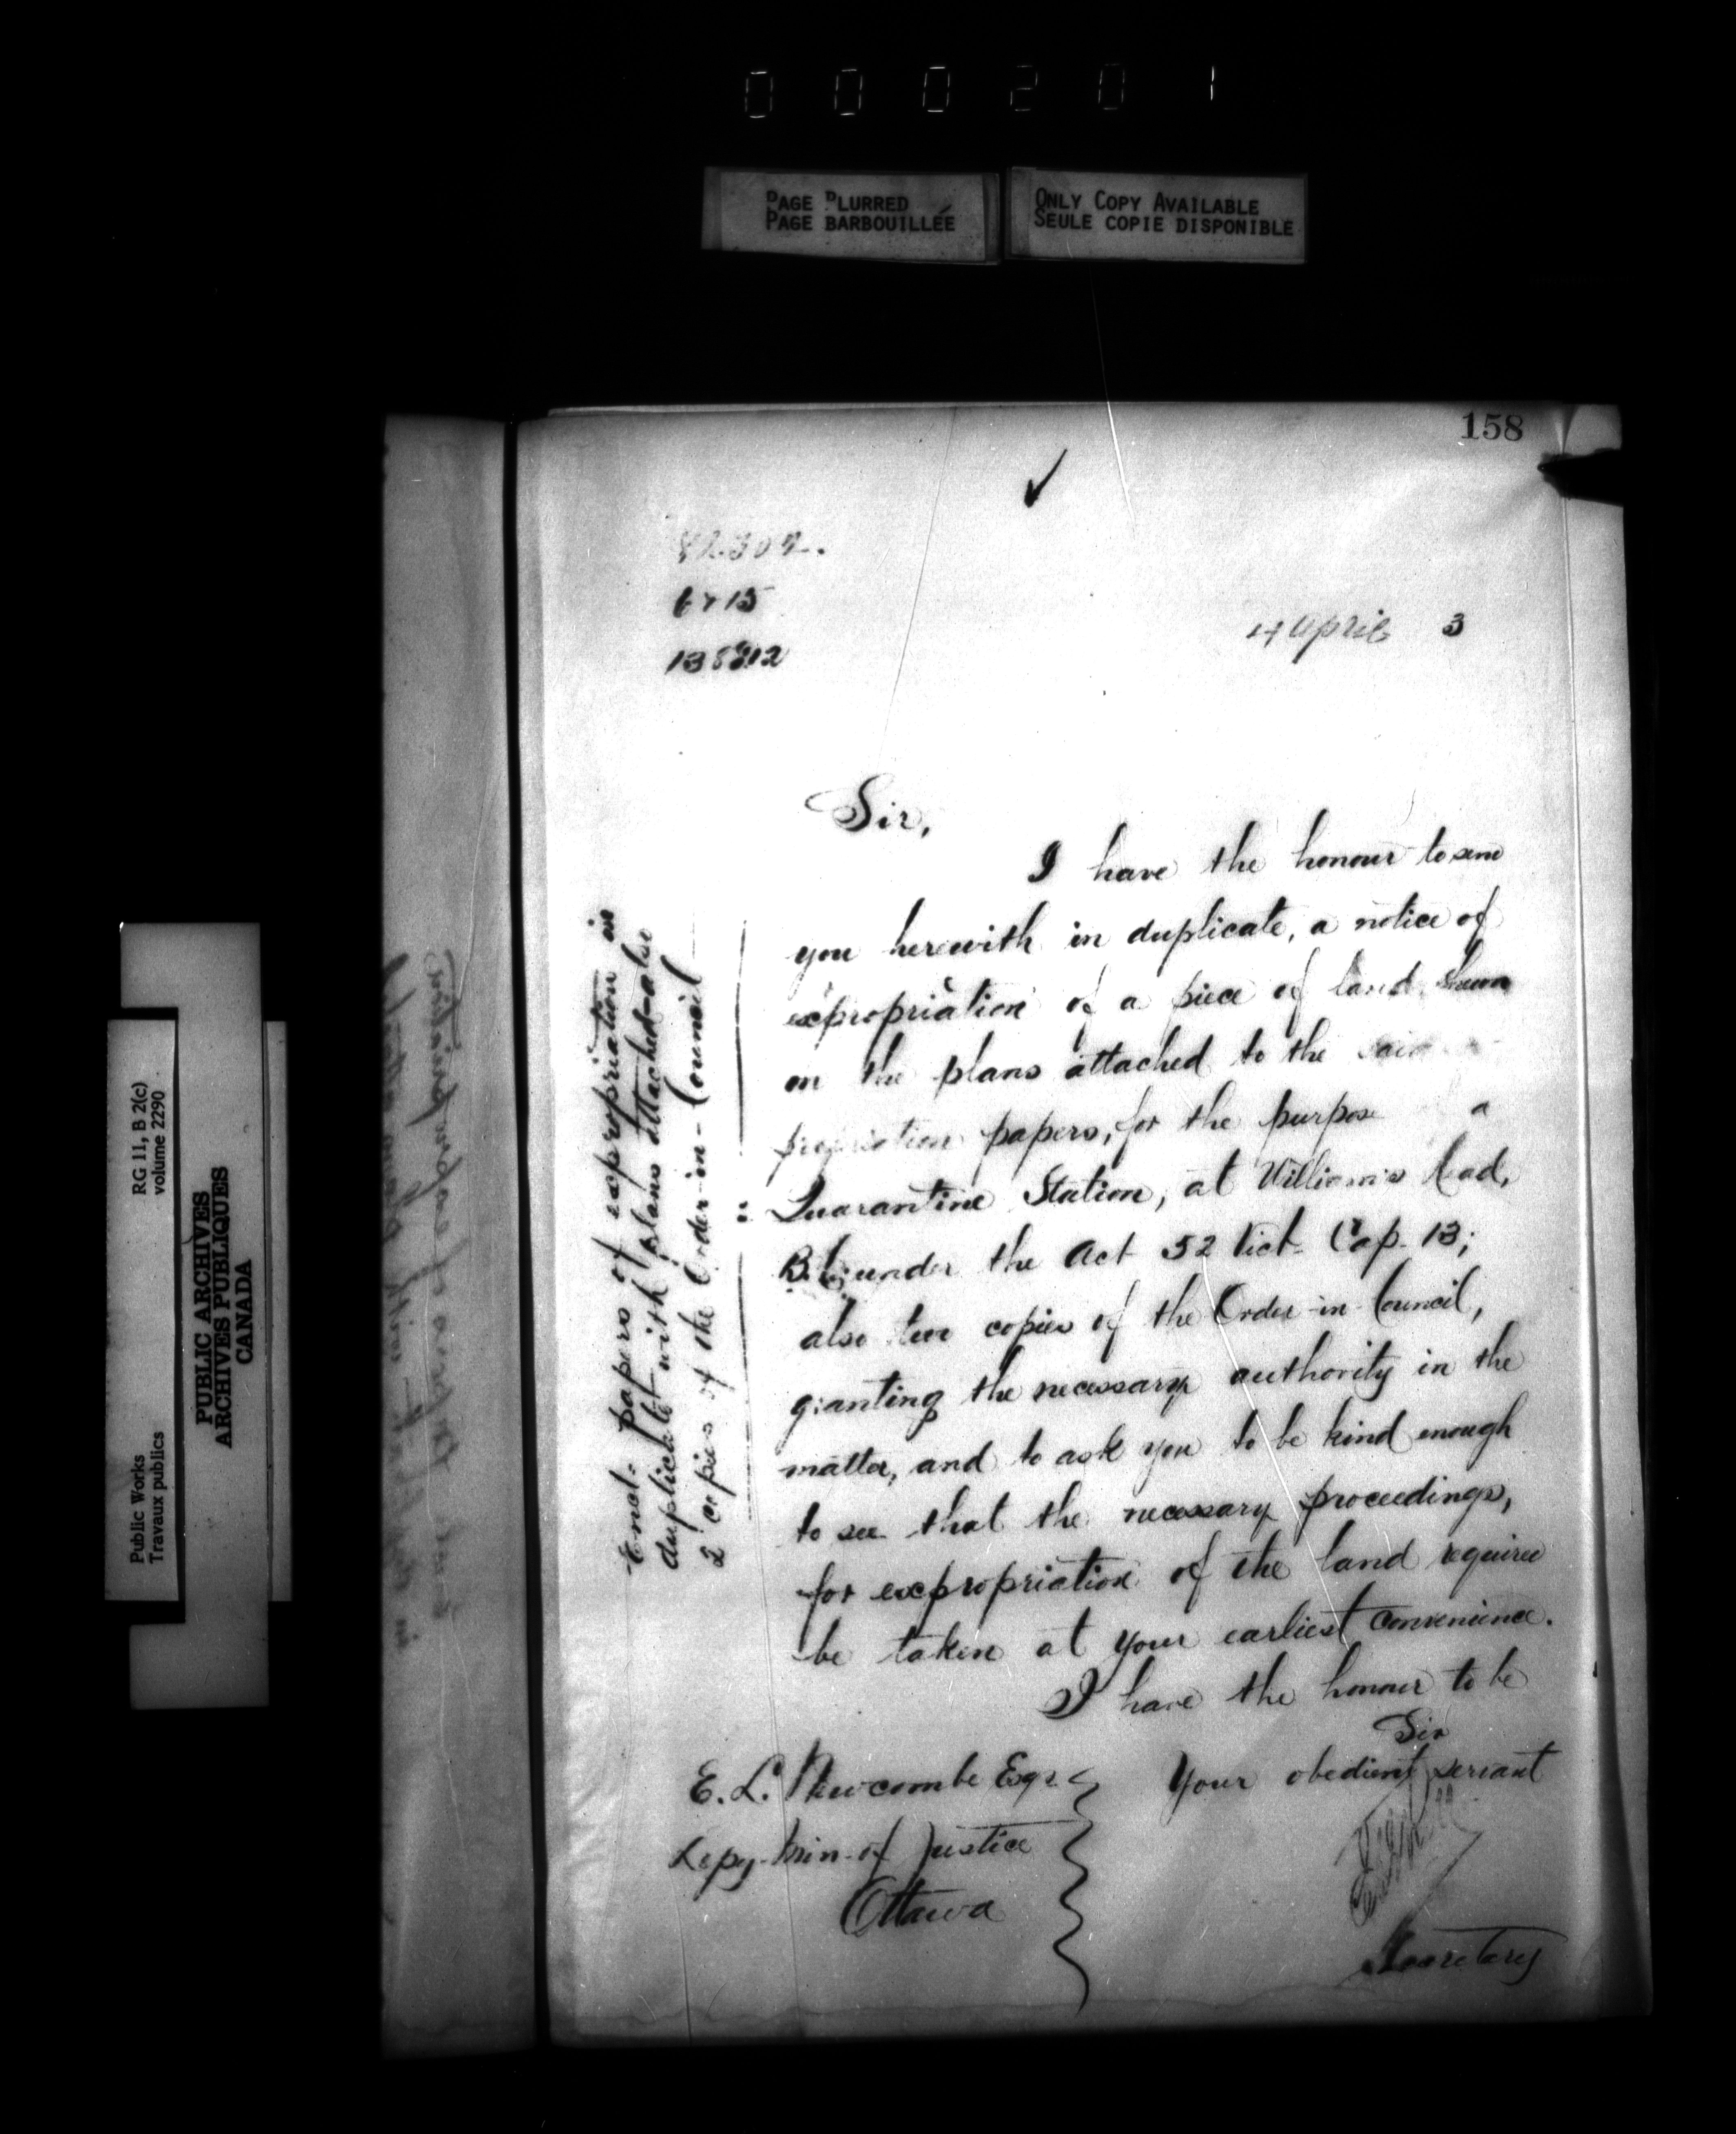 000201
PAGE BLURRED
PAGE BARBOUILLÉE
ONLY COPY AVAILABLE
SEULE COPIE DISPONIBLE
158
6715
4 April 3
Sir,
I have the honour to send
you herewith in duplicate, a notice of
expropriation of a piece of land shewn
on the plans attached to the said
papers, for the purpose a
Quarantine Station, at William's Head,
B.C. under the Act 52 Vict. Cap. 13;
also two copies of the Order-in-Council,
granting the necessary authority in the
matter, and to ask you to be kind enough
to see that the necessary proceedings,
for expropriation of the land required
be taken at your earliest convenience.
I have the honour to be
Sir
Your obedient servant
Secretary
E. L. Newcombe Esqr.
Depy. Min. of Justice
Ottawa
Encl. papers of expropriation in
duplicate with plans attached - also
2 copies of the Order-in-Council
RG 11, B 2(c)
volume 2290
Public Works
Travaux publics
PUBLIC ARCHIVES
ARCHIVES PUBLIQUES
CANADA